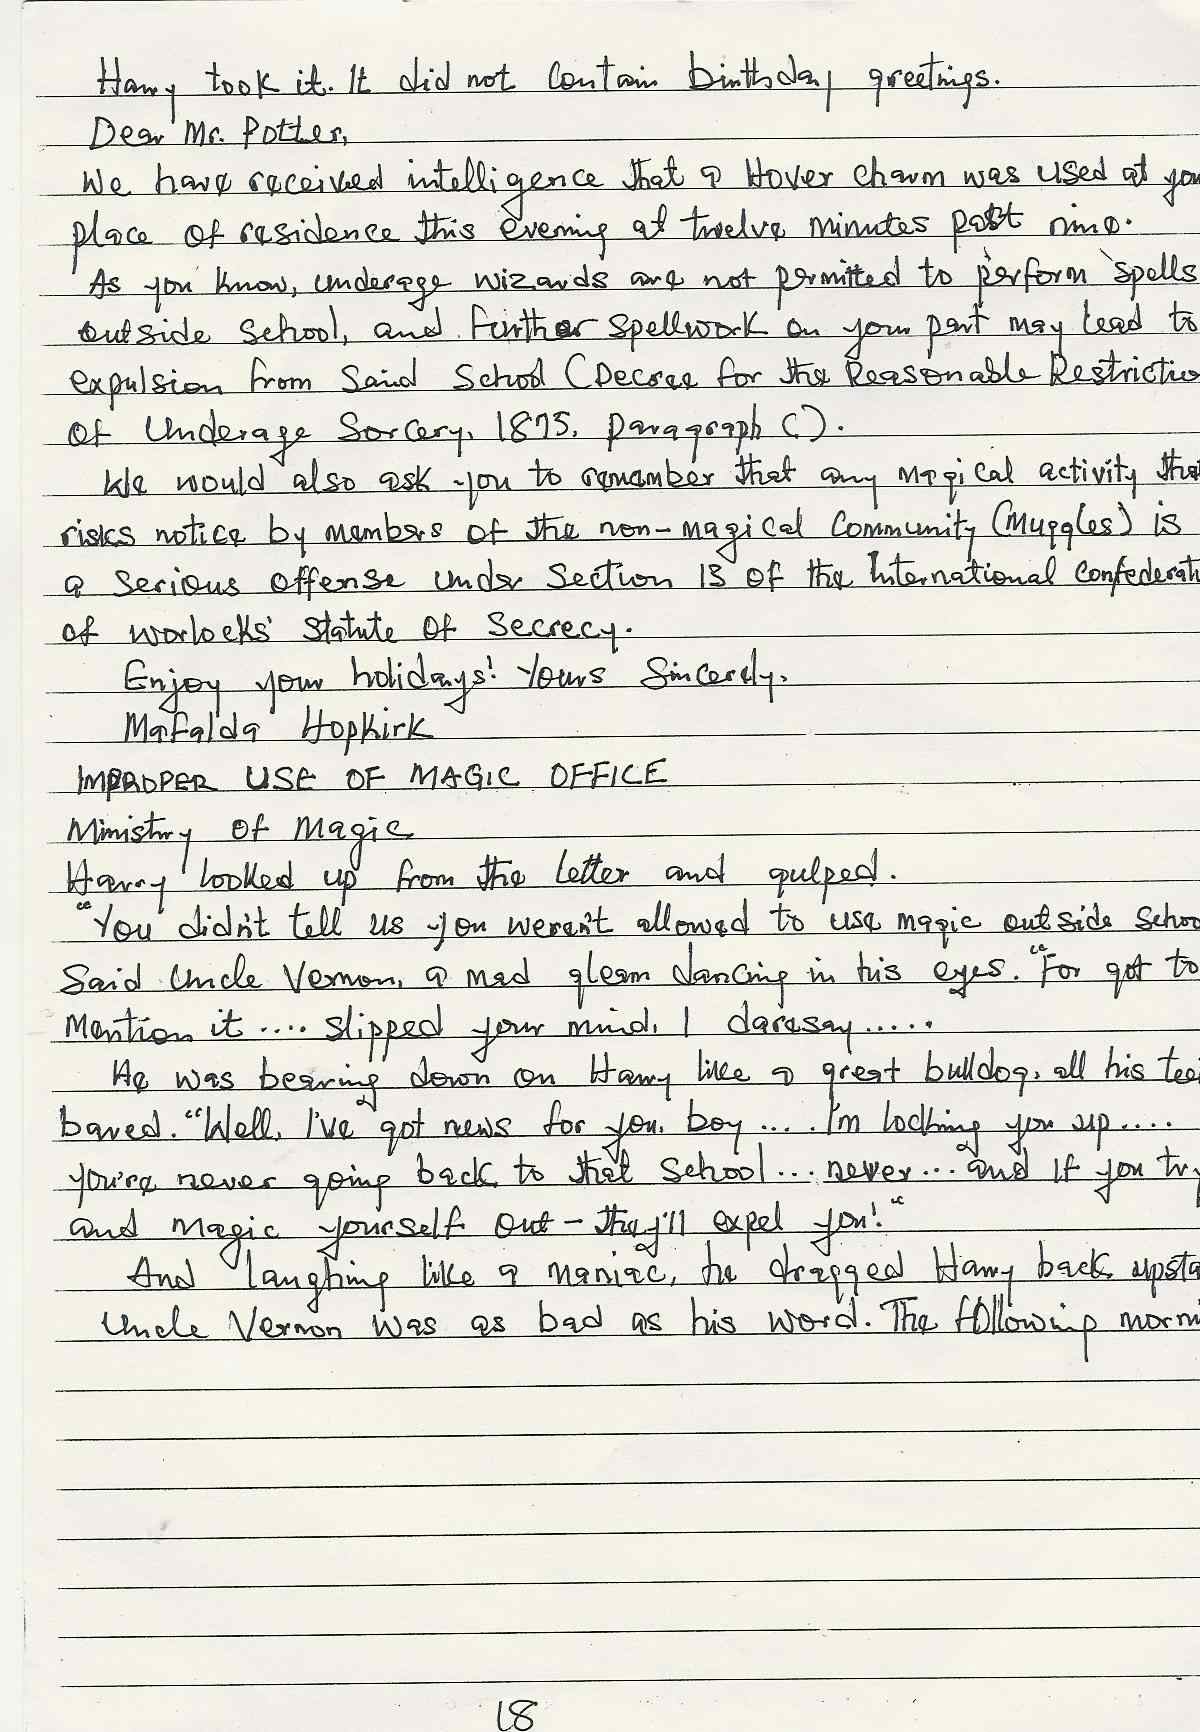 Harry took it. It did not contain birthday greetings.
Dear Mr. Potter,
We have received intelligence that a Hover charm was used at you
place of residence this evening at twelve minutes past nine.
As you know, underage wizards are not permitted to perform spells
outside school, and further spellwork on your part may lead to
expulsion from said school (Decree for the Reasonable Restrictio
of Underage Sorcery, 1875, paragraph C).
We would also ask you to remember that any magical activity that
risks notice by members of the non-magical community (Muggles) is
a serious offense under section 13 of the International Confederati
of worlocks' statute of Secrecy.
Enjoy your holidays! Yours Sincerely,
Mafalda Hopkirk
IMPROPER USE OF MAGIC OFFICE
Ministry of Magic
Harry looked up from the letter and gulped.
"You didn't tell us you weren't allowed to use magic outside schoo
Said Uncle Vernon, a mad gleam dancing in his eyes. "For got to
mention it .... slipped your mind, I daresay.....
He was bearing down on Harry like a great bulldog, all his tee
bared. "Well, I've got news for you, boy .... I'm locking you up....
you're never going back to that school... never... and if you try
and magic yourself out - they'll expel you!"
And laughing like a maniac, he dragged Harry back upsta
Uncle Vernon was as bad as his word. The following morni
18